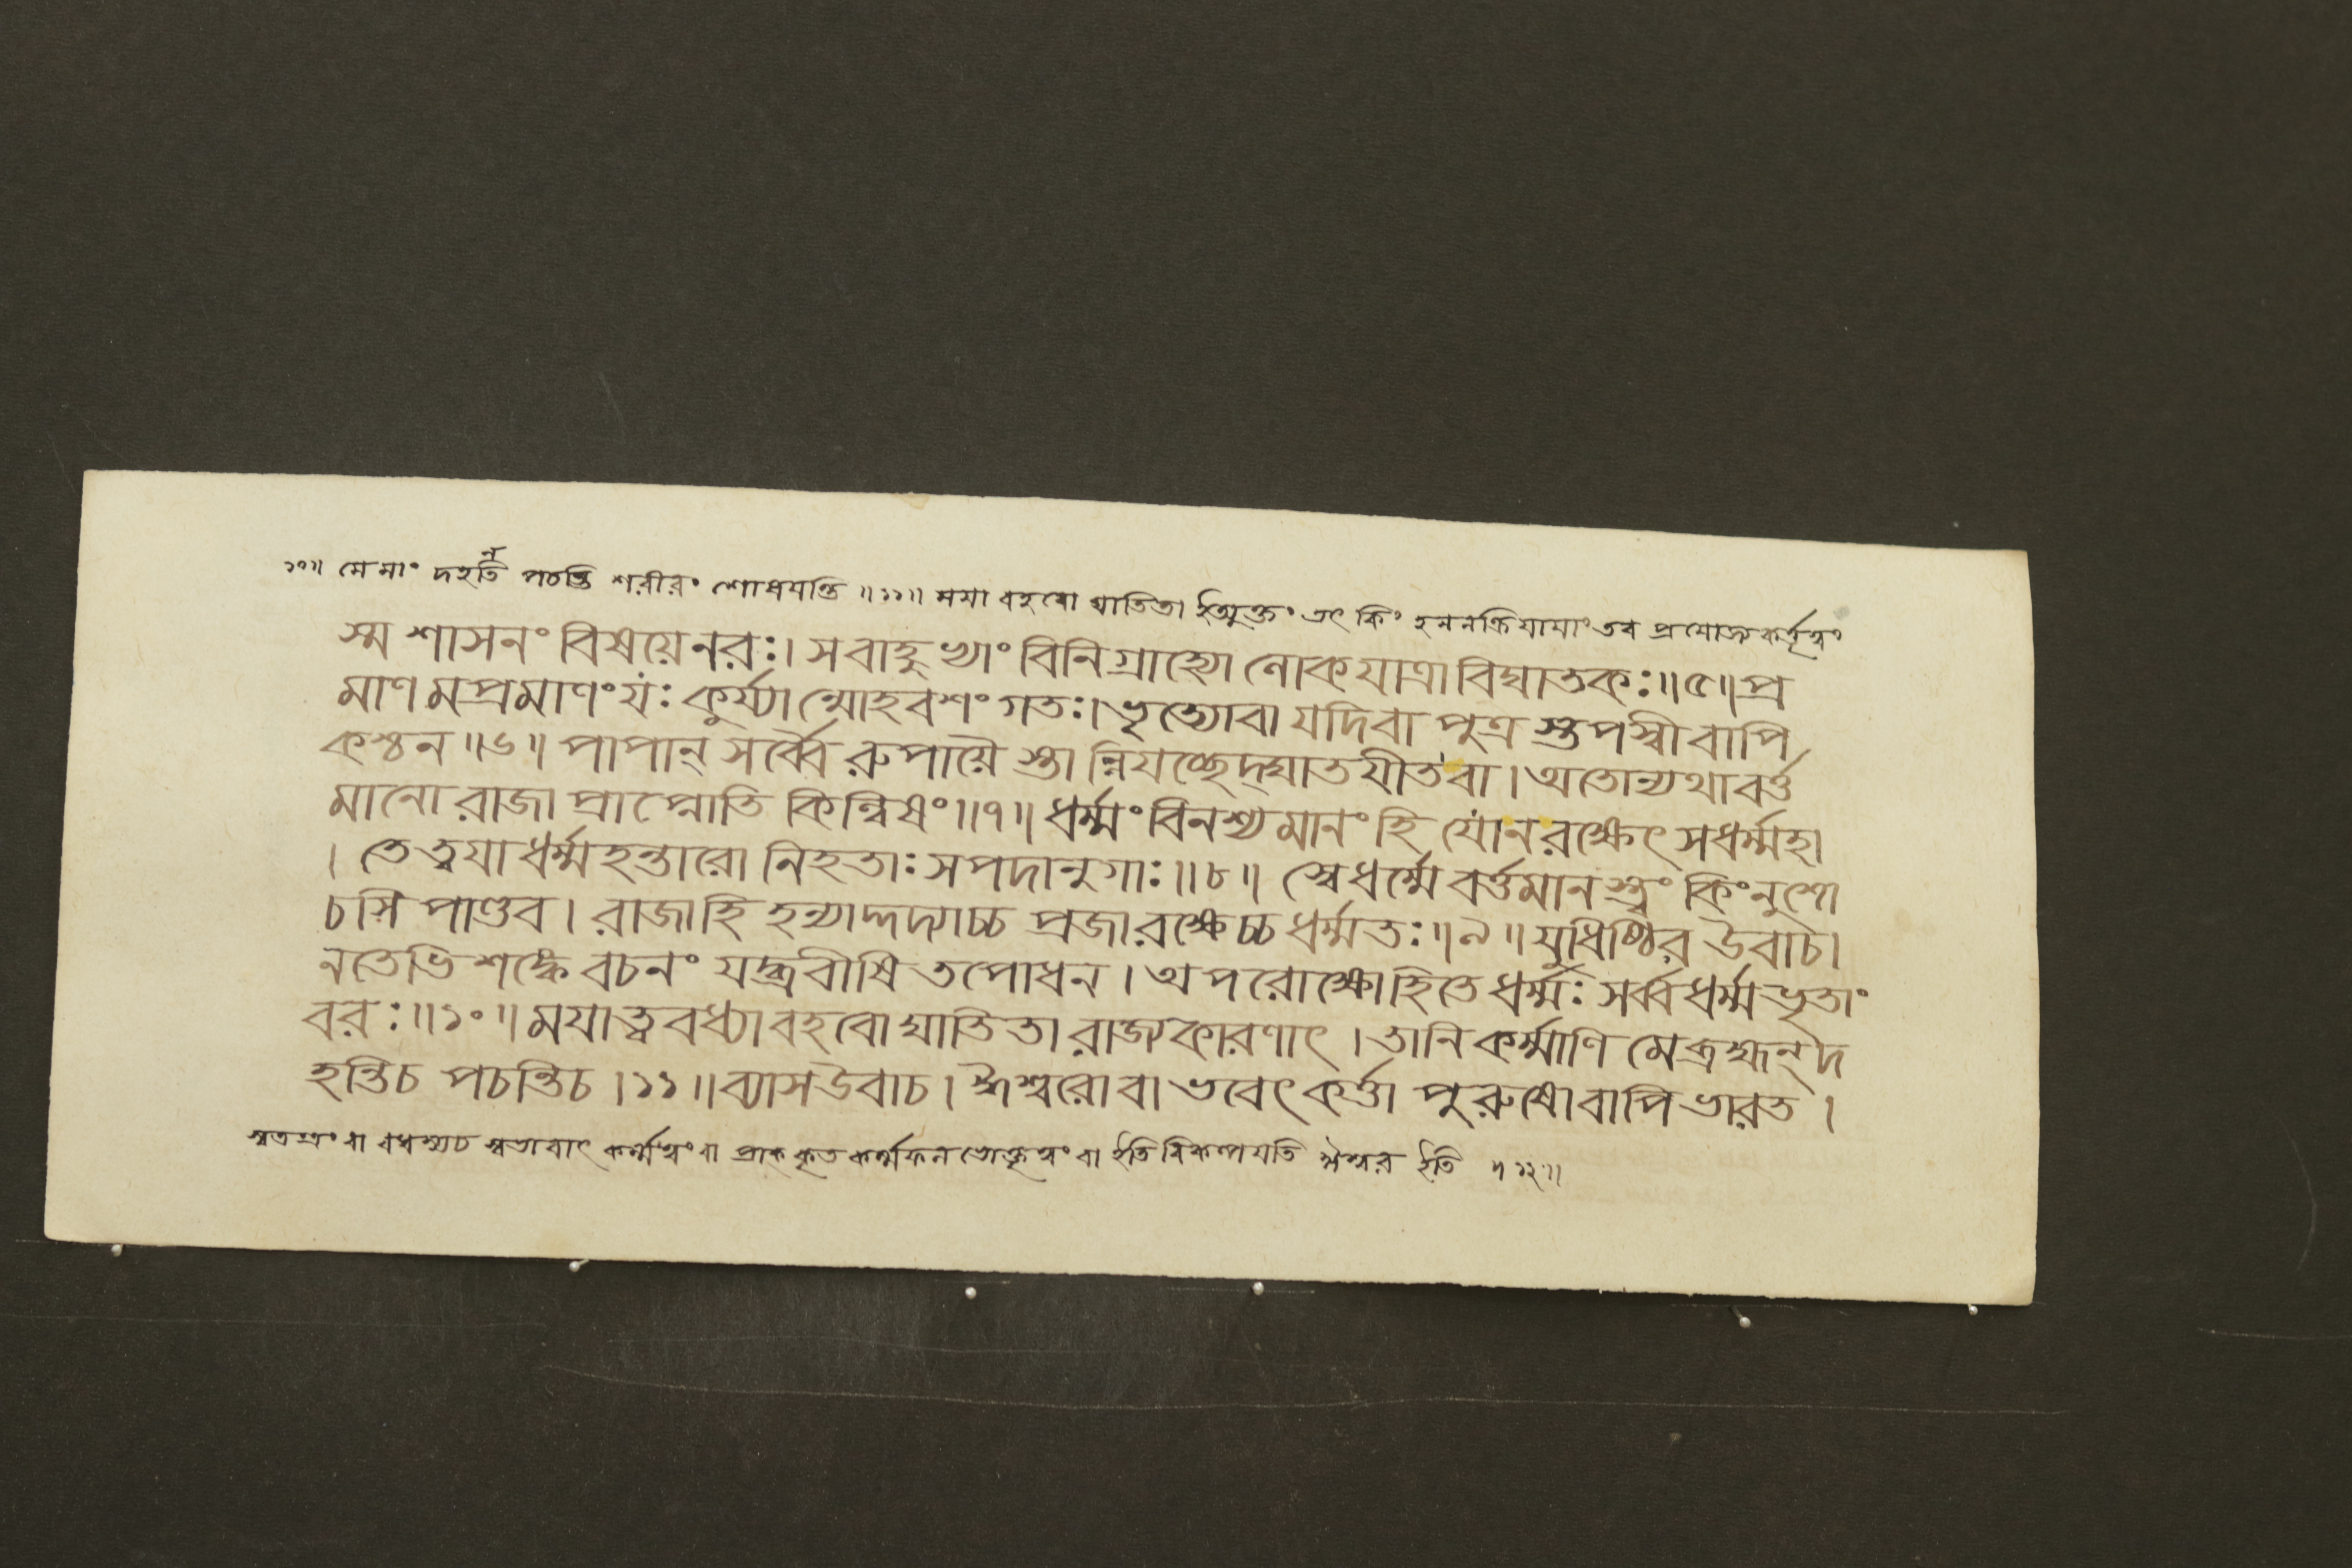 ১০॥ মে মাং দহন্তি পচন্তি শরীরং শোধযন্তি ॥১১॥ মযা বহবো ঘাতিতা ইত্যুক্তং তৎ কিং হননক্রিযাযাং তব প্রযোজ্যকর্তৃত্বং
স্ম শাসনং বিষয়ে নরঃ। সবাহুভ্যাং বিনিগ্রাহ্যো লোকযাত্রা বিঘাতকঃ॥৫॥ প্র
মাণ মপ্রমাণং যঃ কুর্য্যা ন্মোহবশং গতঃ। ভৃত্যোবা যদিবা পুত্র স্তপস্বী বাপি
কশ্চন॥৬॥ পাপান্ সর্ব্বৈ রুপায়ৈ স্তা ন্নিযচ্ছেদ্ঘাতযীতবা। অতোন্যথা বর্ত্ত
মানো রাজা প্রাপ্নোতি কিল্বিষং॥৭॥ ধর্ম্মং বিনশ্যমানং হি যোন রক্ষেৎ সধর্ম্মহা
। তে ত্বযা ধর্ম্মহন্তারো নিহতাঃ সপদানুগাঃ॥৮॥ স্বেধর্ম্মে বর্ত্তমান স্ত্বং কিংনুশো
চসি পাণ্ডব। রাজাহি হন্যাদ্দদ্যাচ্চ প্রজারক্ষেচ্চ ধর্ম্মতঃ॥৯॥ যুধিষ্ঠির উবাচ।
নতেভিশঙ্কে বচনং যদ্ব্রবীষি তপোধন। অপরোক্ষোহিতে ধর্ম্মঃ সর্ব্বধর্ম্মভৃতাং
বরঃ॥১০॥ মযাত্ববধ্যা বহবো ঘাতিতা রাজ্যকারণাৎ। তানি কর্ম্মাণি মে ব্রহ্মন্ দ
হন্তিচ পচন্তিচ।১১॥ ব্যাস উবাচ। ঈশ্বরোবা ভবেৎ কর্ত্তা পুরুষোবাপি ভারত।
স্বতন্ত্রং বা স্বভাবাৎ বা প্রাক্ কৃতকর্ম্মফলভোক্তৃত্বং বা ইতি বিকল্পযতি ঈশ্বর ইতি ॥১২॥